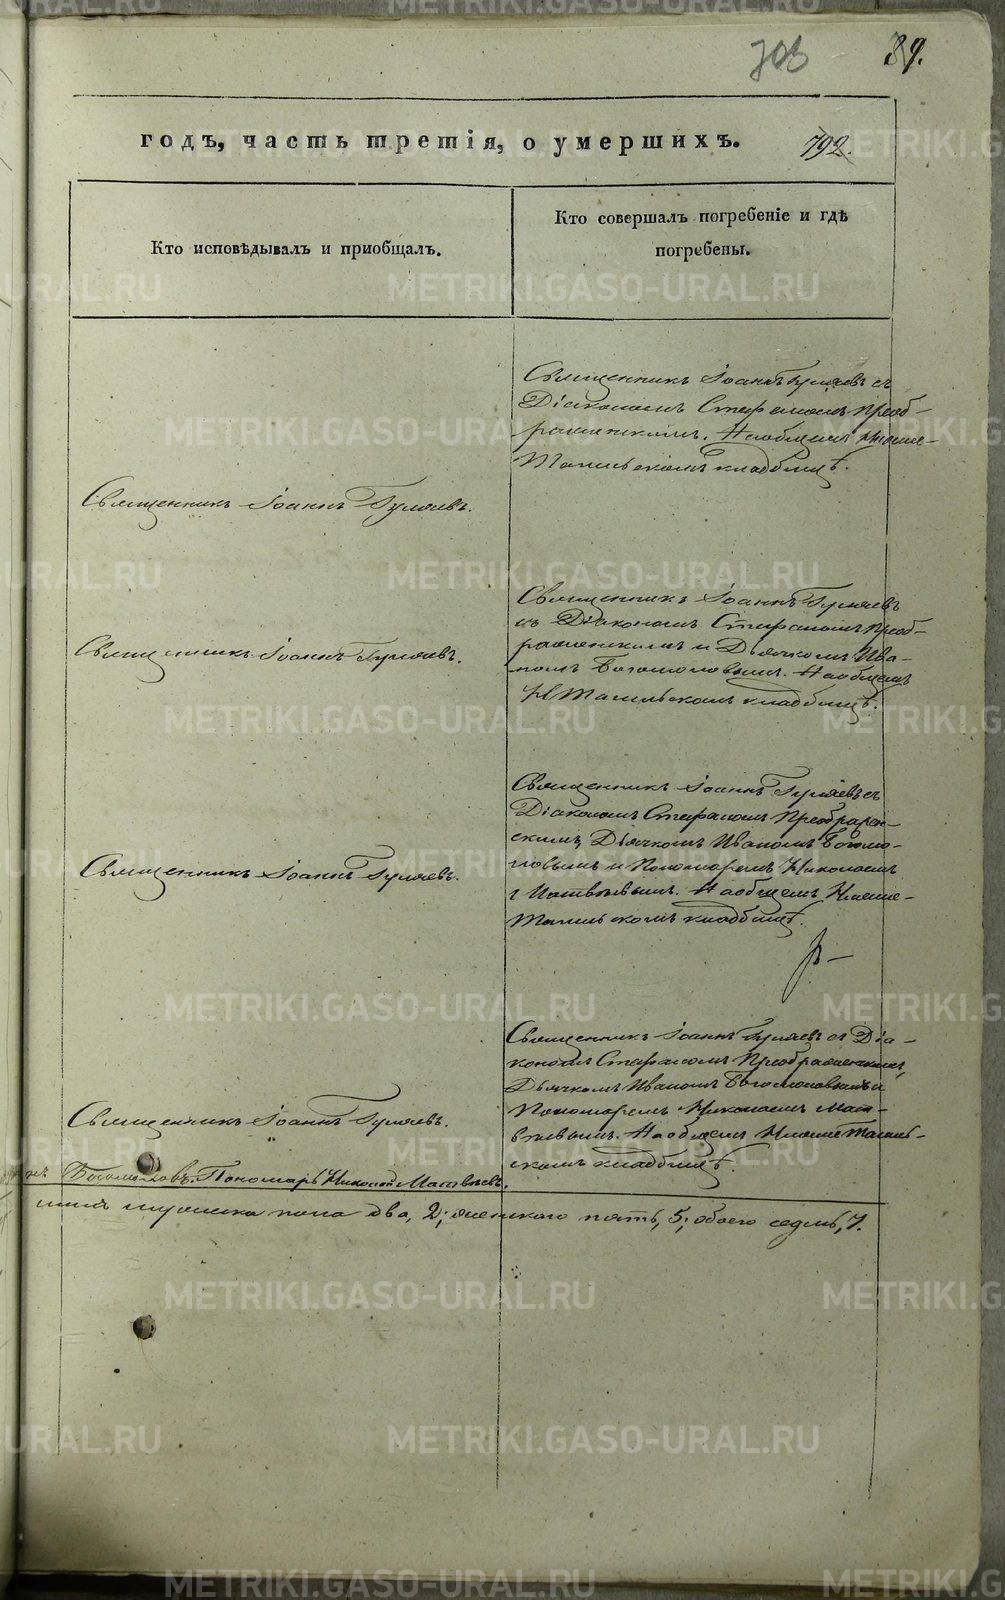 703 39.
годъ, часть третія, о умершихъ. 792.
Кто исповѣдывалъ и пріобщалъ.
Кто совершалъ погребеніе и гдѣ
погребены.
Священникъ Іоаннъ Гуляевъ съ
Діакономъ Стефаномъ Преоб-
раженскимъ. На общемъ Нижне-
Тагильскомъ кладбищѣ.
Священникъ Іоаннъ Гуляевъ.
Священникъ Іоаннъ Гуляевъ
съ Діакономъ Стефаномъ Преоб-
раженскимъ и Дьячкомъ Ива-
номъ Богомоловымъ. На общемъ
Н Тагильскомъ кладбищѣ.
Священникъ Іоаннъ Гуляевъ.
Священникъ Іоаннъ Гуляевъ съ
Діакономъ Стефаномъ Преображен-
скимъ, Дьячкомъ Иваномъ Богомо-
ловымъ и Пономаремъ Николаемъ
Матвѣевымъ. На общемъ Нижне-
Тагильскомъ кладбищѣ.
Священникъ Іоаннъ Гуляевъ.
Священникъ Іоаннъ Гуляевъ съ Діа-
кономъ Стефаномъ Преображенскимъ,
Дьячкомъ Иваномъ Богомоловымъ и
Пономаремъ Николаемъ Мат-
вѣевымъ. На общемъ Нижне Тагиль-
скомъ кладбищѣ.
Священникъ Іоаннъ Гуляевъ.
Богомоловъ. Пономарь Николай Матвѣевъ.
мужеска пола два, 2; женскаго пять, 5; обоего седмь, 7.
METRIKI.GASO-URAL.RU